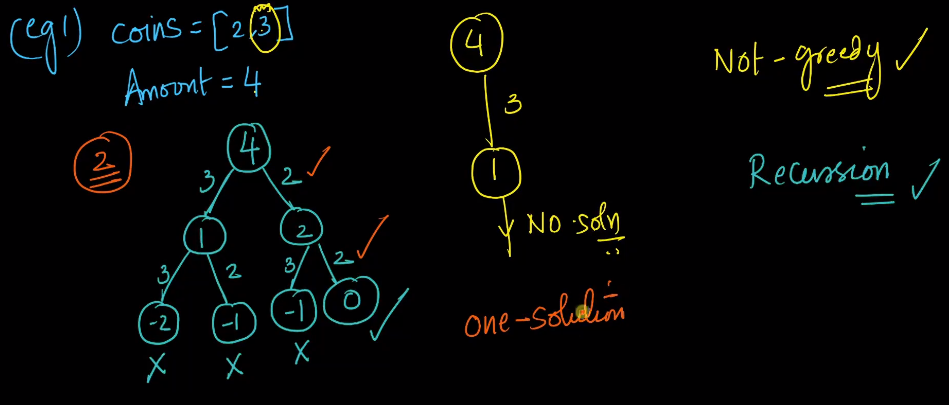 (eg1) coins = [2,3]
Amount = 4
2
4
3 2
1 2
3 2 3 2
-2 -1 -1 0
X X X
4
3
1
No soln
one-solution
Not-greedy
Recussion